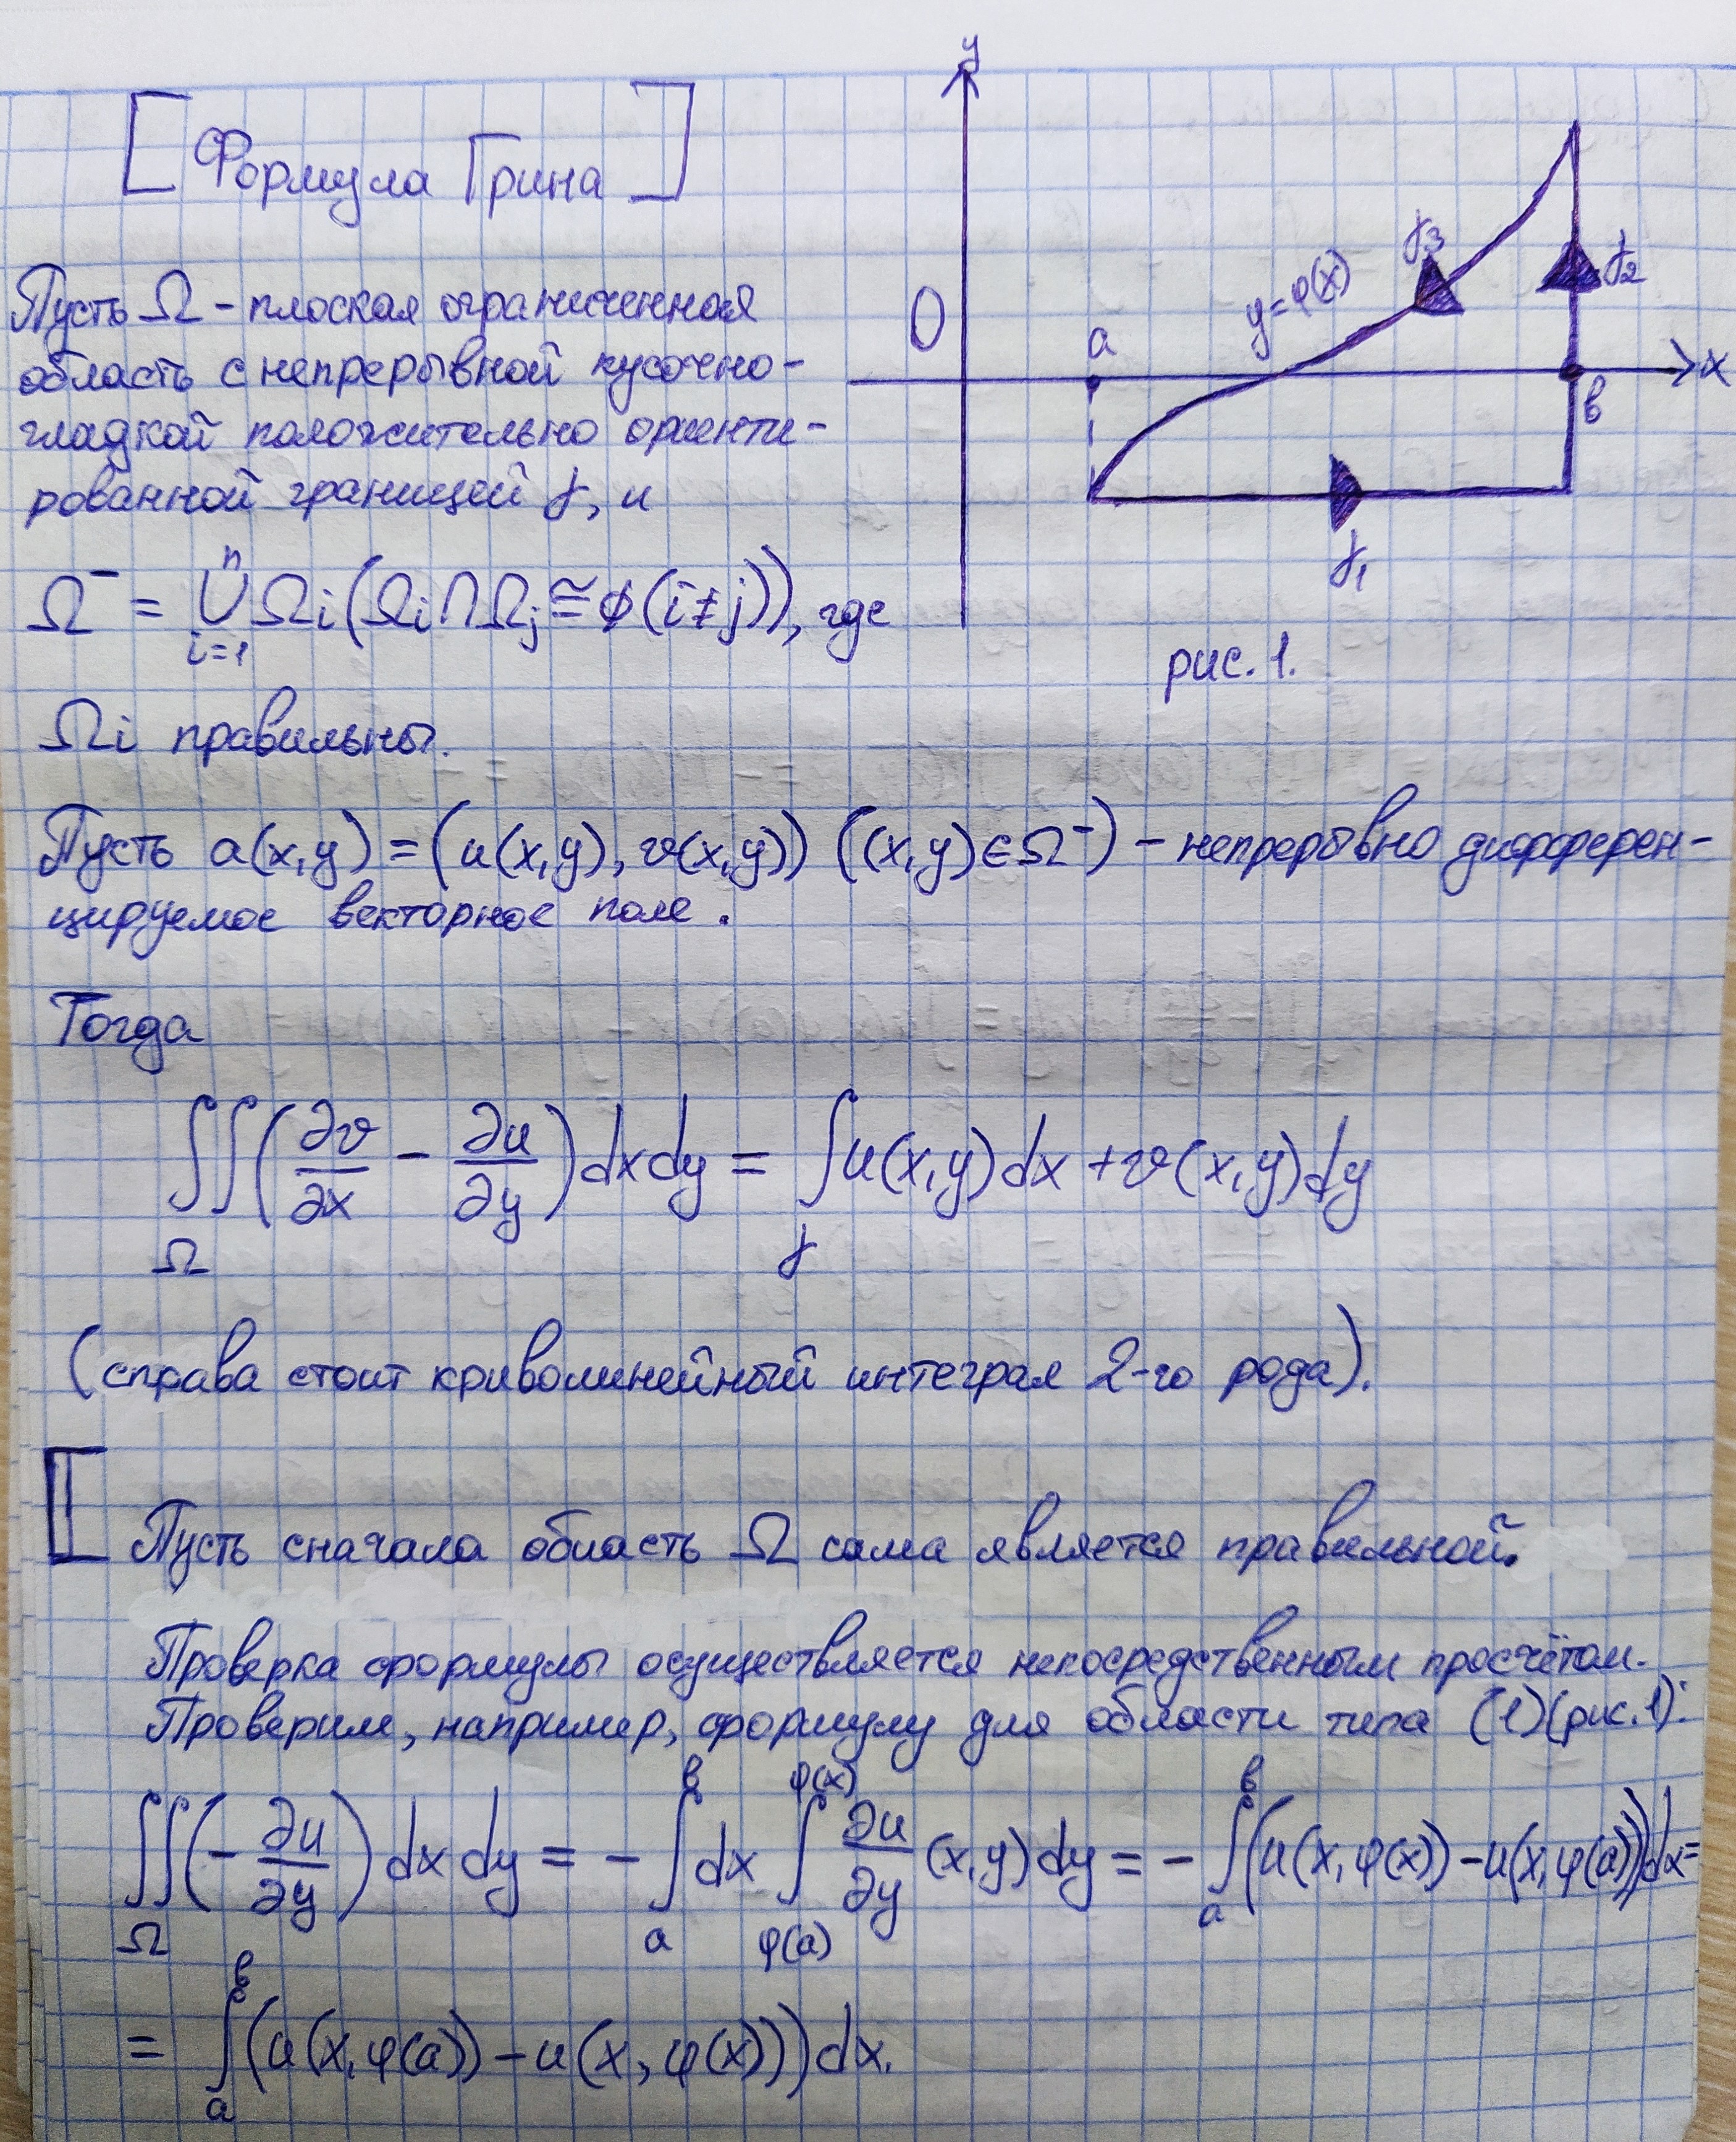 [Формула Грина]
y
0
a
y=φ(x)
γ3
γ2
x
в
γ1
рис. 1.
Пусть Ω - плоская ограниченная
область с непрерывной кусочно-
гладкой положительно ориенти-
рованной границей γ, и
Ω⁻ = ⋃ⁿᵢ₌₁ Ωi (Ωi ∩ Ωj ≅ ∅ (i≠j)), где
Ωi правильны.
Пусть a(x,y) = (u(x,y), v(x,y)) ((x,y) ∈ Ω⁻) - непрерывно дифферен-
цируемое векторное поле.
Тогда
∬_Ω (∂v/∂x - ∂u/∂y) dxdy = ∫_γ u(x,y)dx + v(x,y)dy
(справа стоит криволинейный интеграл 2-го рода).
[ Пусть сначала область Ω сама является правильной.
Проверка формулы осуществляется непосредственным просчётом.
Проверим, например, формулу для области типа (1)(рис.1):
∬_Ω (-∂u/∂y) dxdy = -∫_a^в dx ∫_φ(a)^φ(x) ∂u/∂y (x,y)dy = -∫_a^в (u(x,φ(x)) - u(x,φ(a)))dx =
= ∫_a^в (u(x,φ(a)) - u(x,φ(x)))dx.